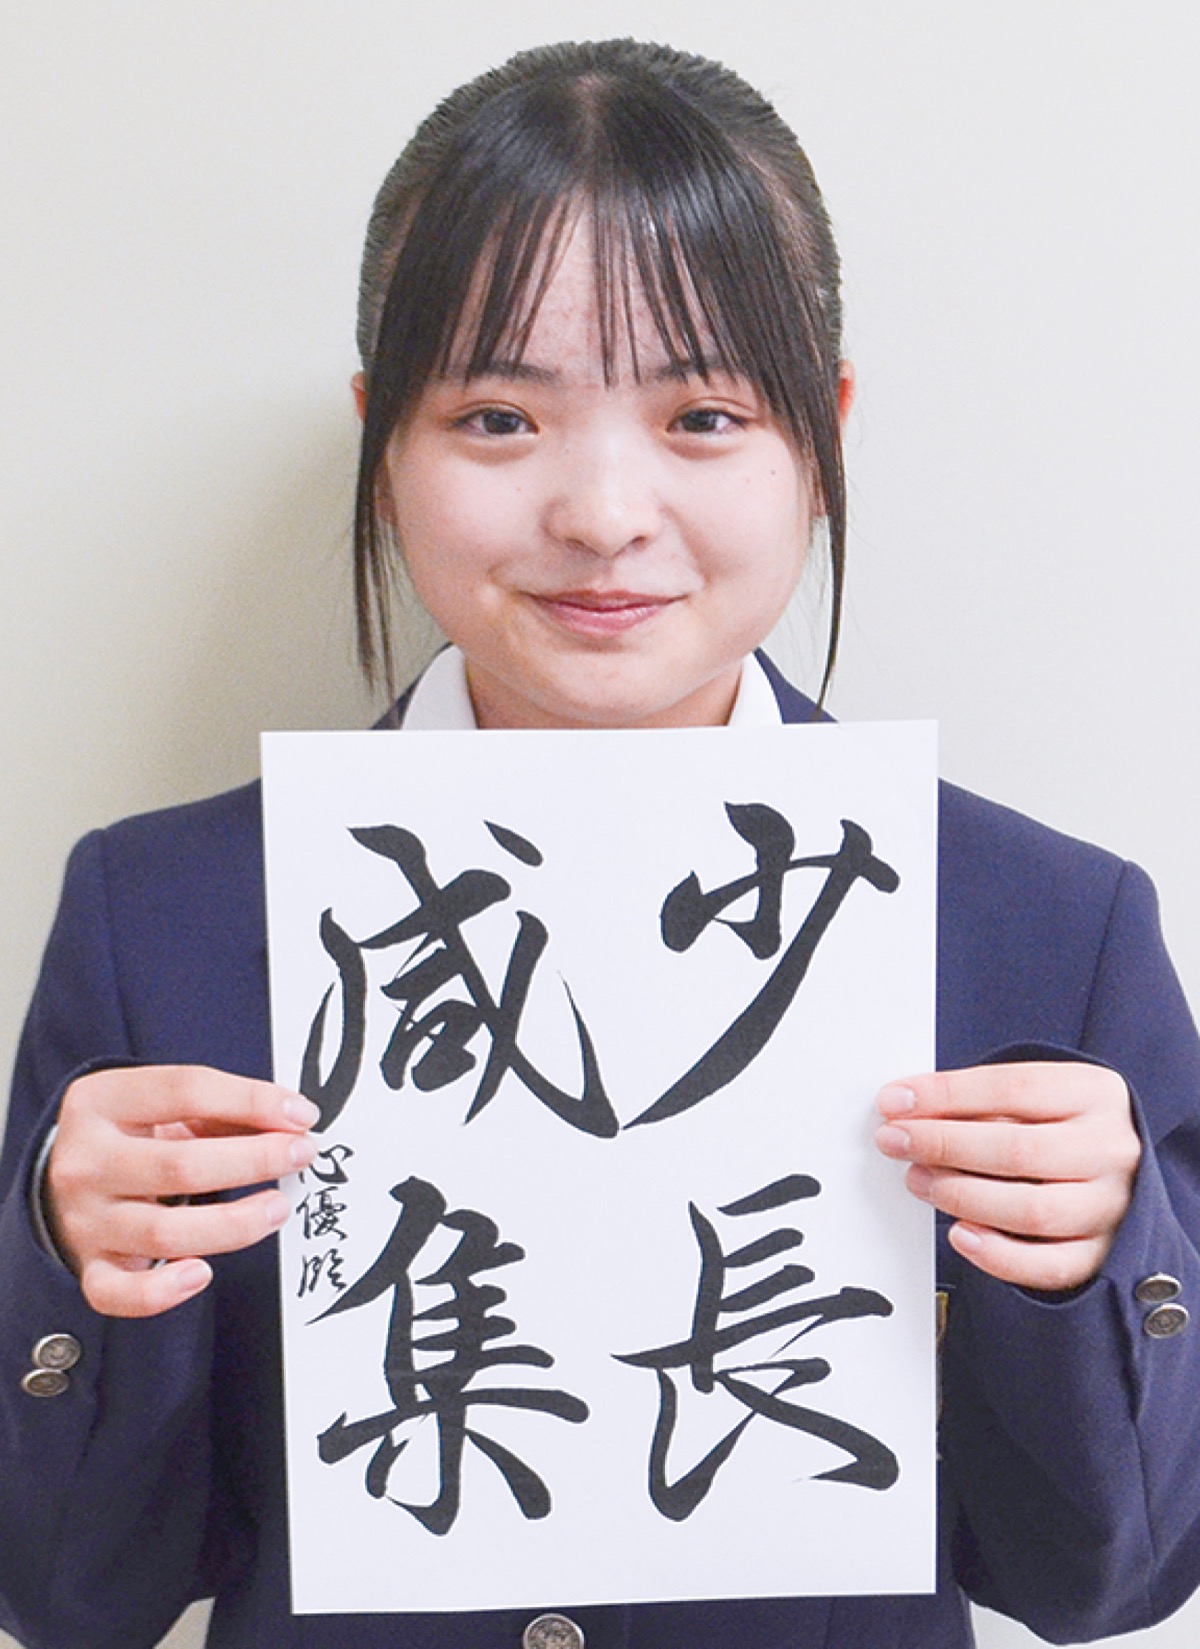 少長
咸集
心優臨